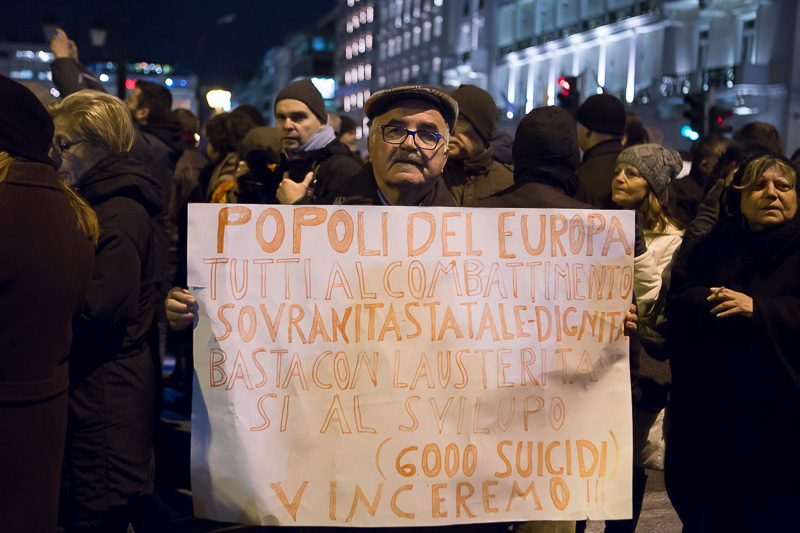 POPOLI DEL EUROPA
TUTTI AL COMBATTIMENTO
SOVRANITA STATALE-DIGNITA
BASTA CON LAUSTERITA
SI AL SVILUPO
(6000 SUICIDI)
VINCEREMO !!!